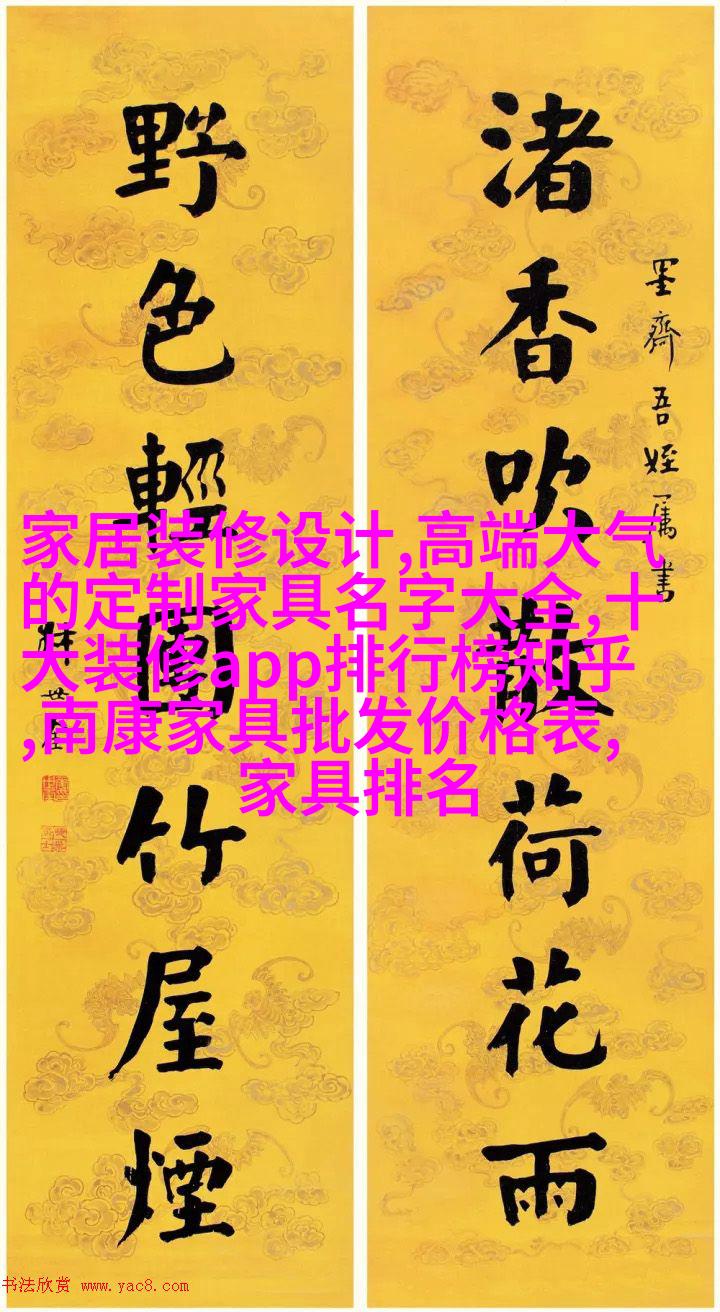 渚香吹散荷花雨
墨齋吾姪屬書
野色輕圍竹屋煙
林世焘
家居装修设计,高端大气
的定制家具名字大全,十
大装修app排行榜知乎
,南康家具批发价格表,
家具排名
书法欣赏 www.yac8.com